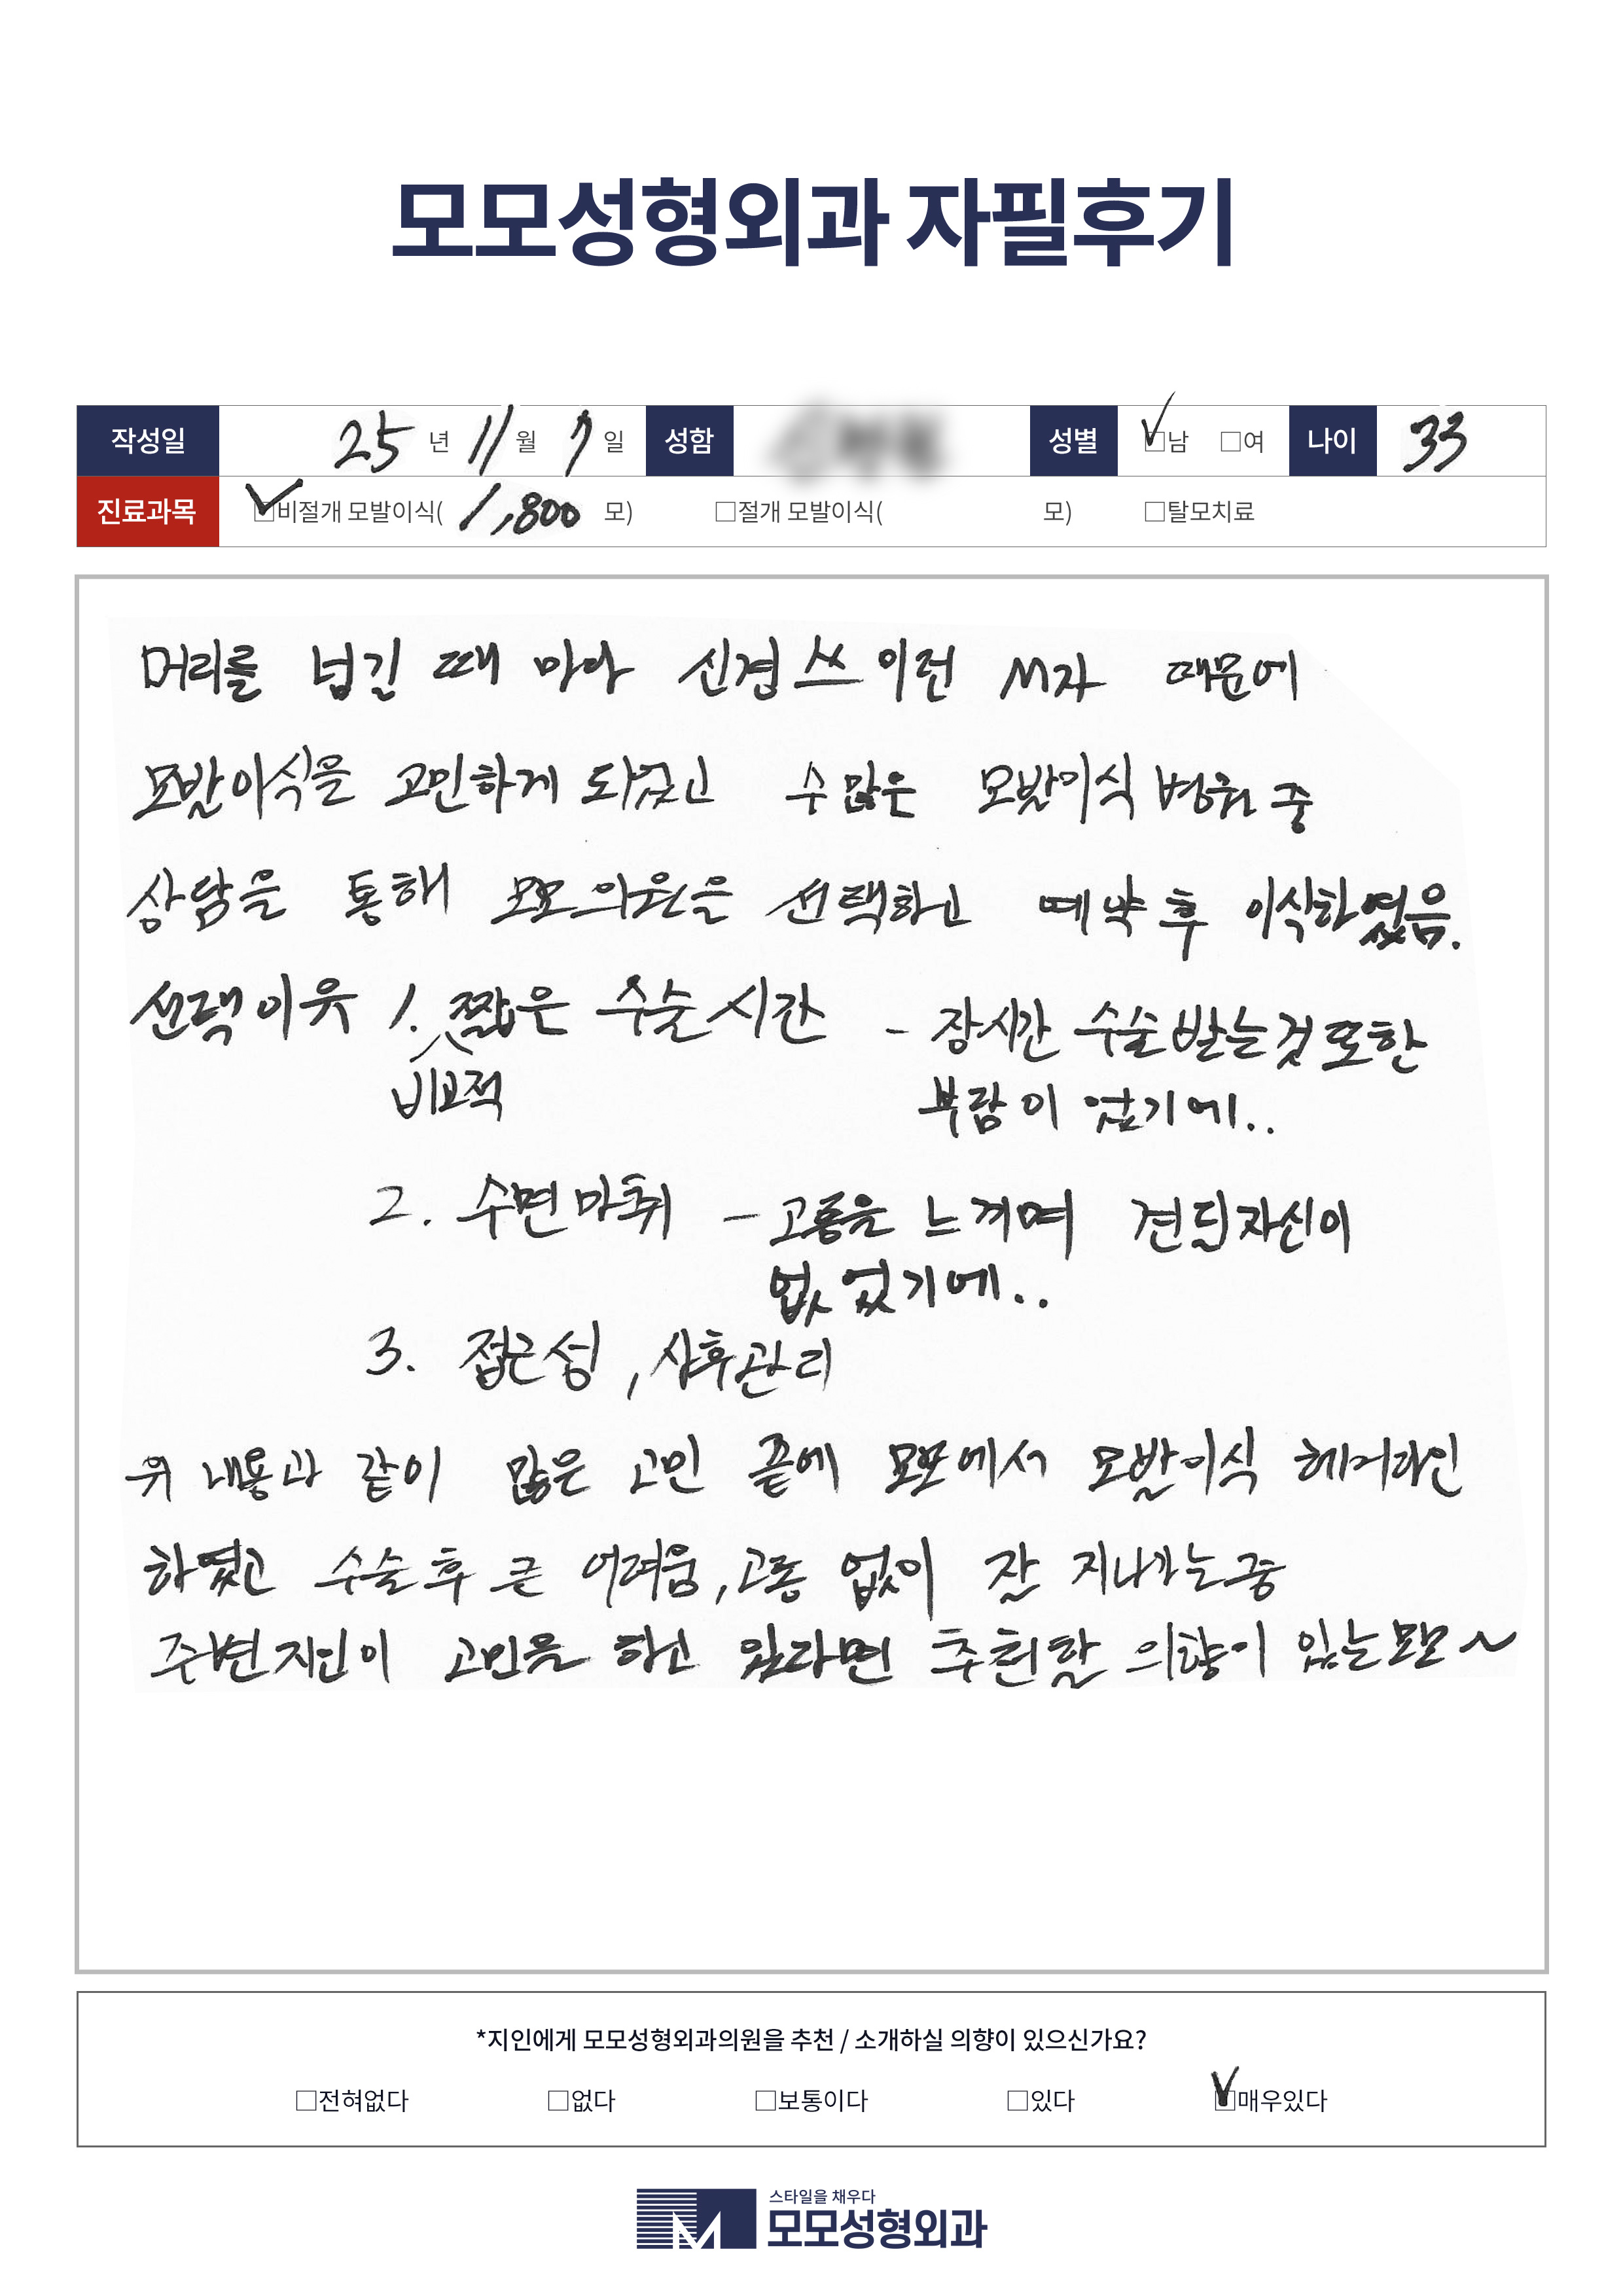 모모성형외과 자필후기
작성일 25 년 11 월 7 일 성함 성별 ☑남 □여 나이 33
진료과목 ☑비절개 모발이식( 1,800 모) □절개 모발이식( 모) □탈모치료
머리를 넘길 때 마다 신경 쓰이던 M자 때문에
모발이식을 고민하게 되었고 수 많은 모발이식 병원 중
상담을 통해 모모의원을 선택하고 예약 후 이식하였음.
선택이유 1. 짧은 수술시간 - 장시간 수술 받는것 또한
비교적 부담이 었기에..
2. 수면마취 - 고통을 느끼며 견딜 자신이
없었기에..
3. 접근성, 사후관리
위 내용과 같이 많은 고민 끝에 모모에서 모발이식 헤어라인
하였고 수술 후 큰 어려움, 고통 없이 잘 지나가는중
주변 지인이 고민을 하고 있다면 추천할 의향이 있는 모모~
*지인에게 모모성형외과의원을 추천 / 소개하실 의향이 있으신가요?
□전혀없다 □없다 □보통이다 □있다 ☑매우있다
스타일을 채우다
모모성형외과